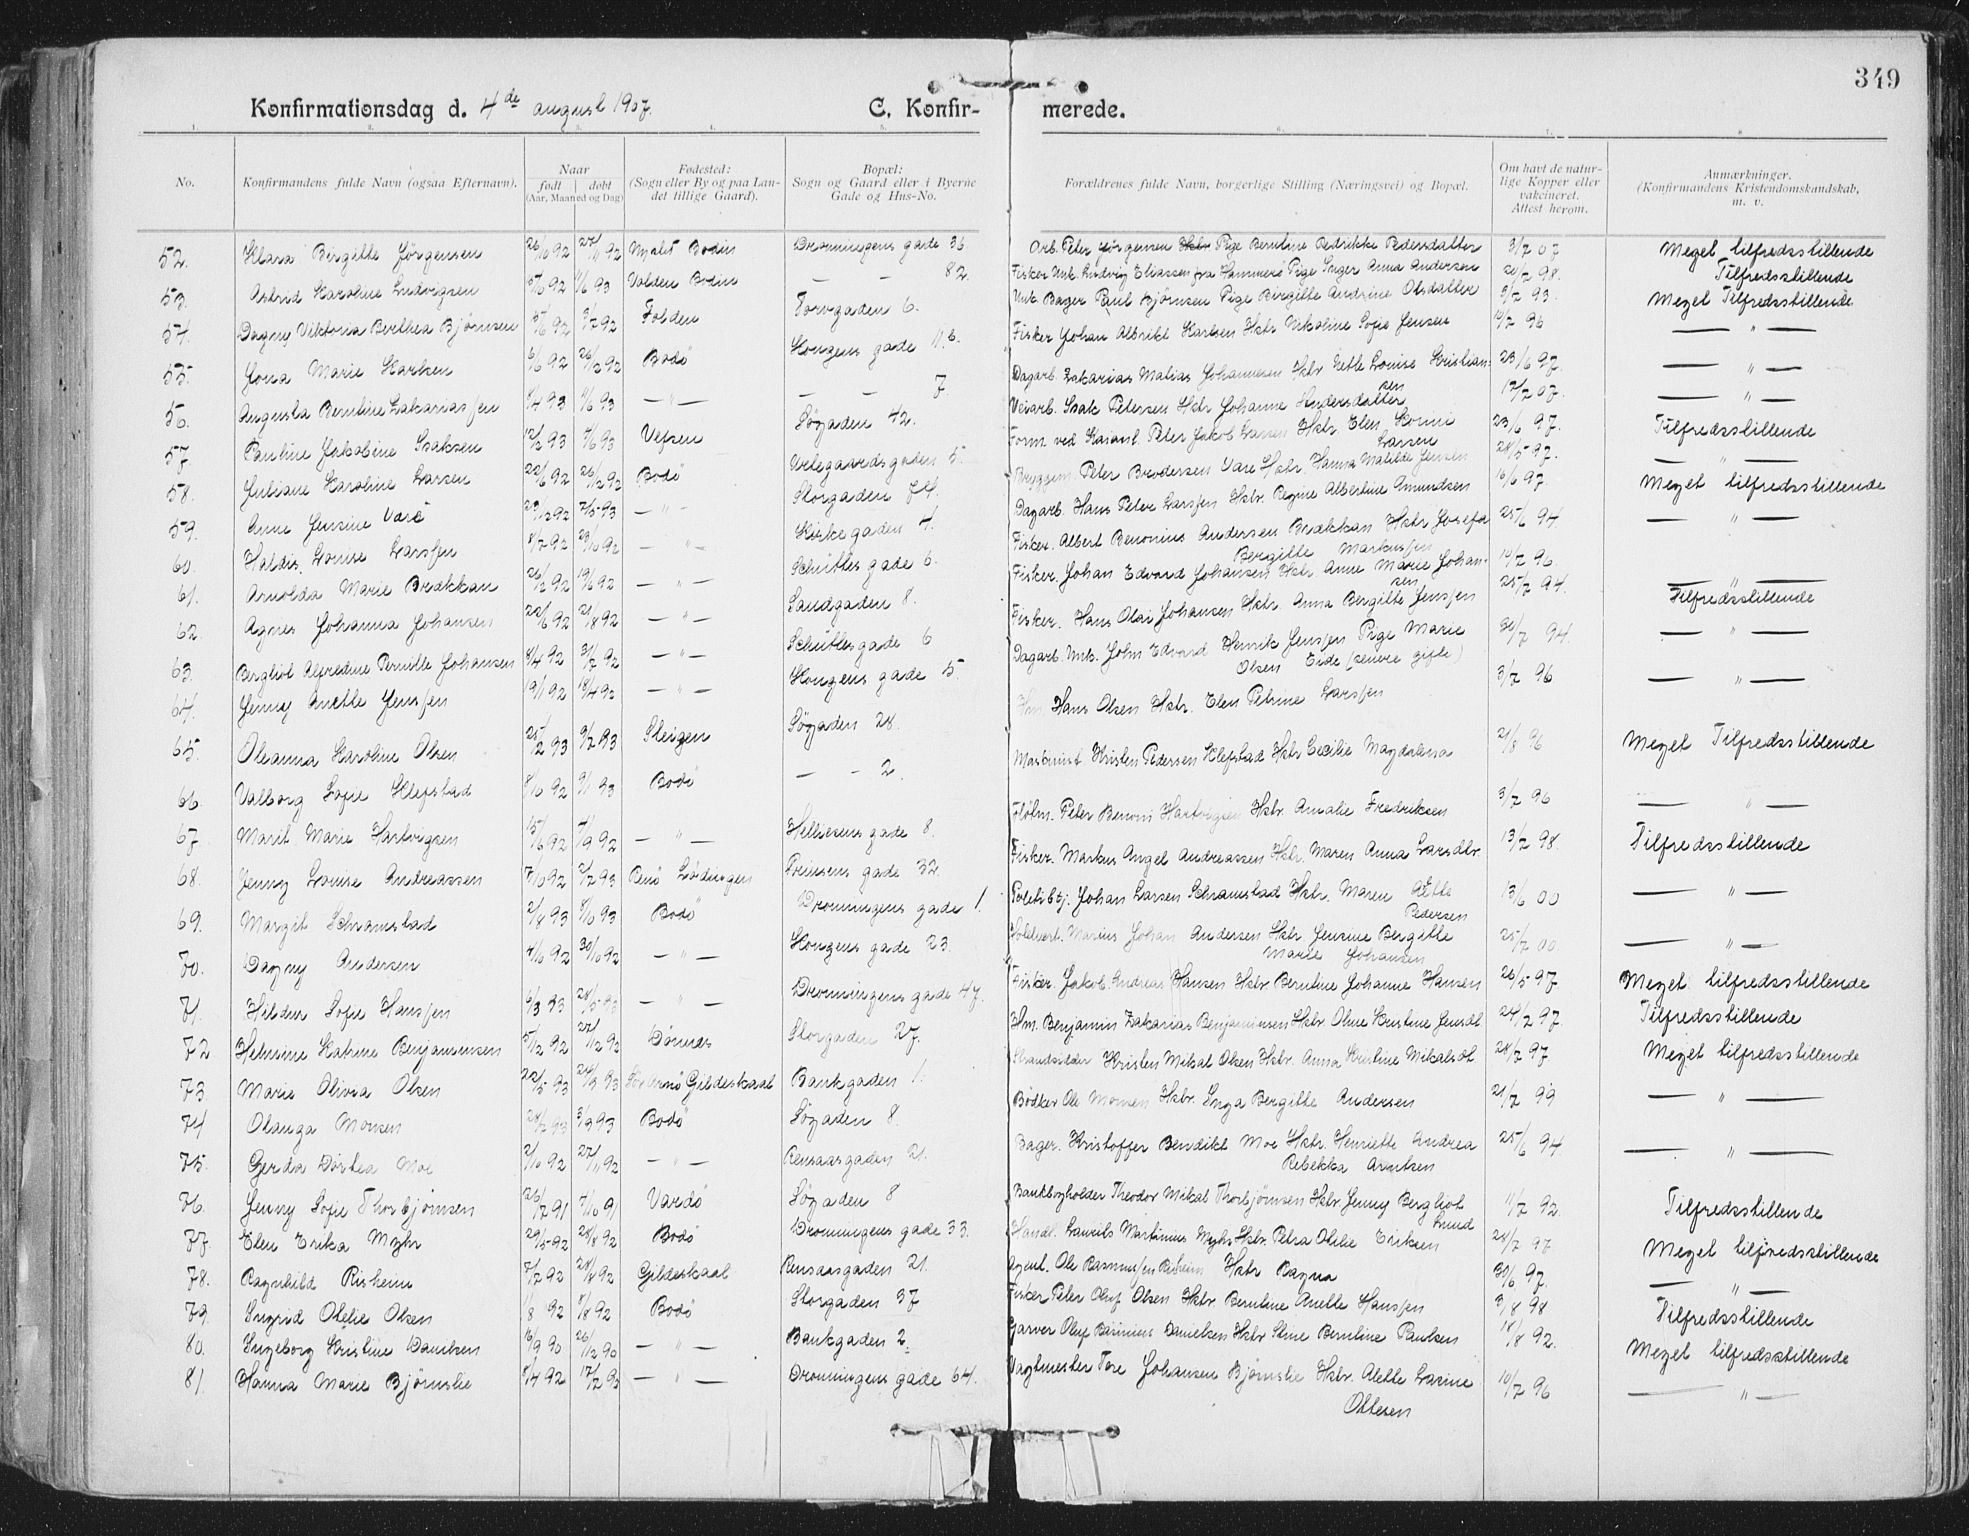 349
Konfirmationsdag d. 4de august 1907. C. Konfir- merede.
1. 2. 3. 4. 5. 6. 7. 8.
No. Konfirmandens fulde Navn (ogsaa Efternavn). Naar født døbt (Aar, Maaned og Dag) Fødested: (Sogn eller By og paa Landet tillige Gaard). Bopæl: Sogn og Gaard eller i Byerne Gade og Hus-No. Forældrenes fulde Navn, borgerlige Stilling (Næringsvei) og Bopæl. Om havt de naturlige Kopper eller vakcineret. Attest herom. Anmærkninger. (Konfirmandens Kristendomskundskab, m. v.
52. Klara Birgitte Jørgensen 26/10 92 27/11 92 Bodin Dronningens gade 36 Arb. Peter Jørgensen Pige Berntine Pedrikke Pedersdatter 3/7 07 Meget tilfredsstillende
53. Astrid Karoline Ludvigsen 92 93 Volden Bodin — — 82. Fisker Unk. Ludvig Eliassen fra Hammerø Pige Inger Anna Andersen 20/7 98. Tilfredsstillende
54. Dagny Viktoria Berthea Bjørnsen 92 92 Folden Torvgaden 6. Unk. Bager Paul Bjørnsen Pige Birgitte Andrine Olsdatter 3/7 93. Meget Tilfredsstillende
55. Jona Marie Karlsen 6/6 92 26/12 92 Bodø Kongens gade 11.b. Fisker Johan Albrikt Karlsen Hstr Nikoline Sofie Jensen 14/7 96 — " —
56. Augusta Berntine Zakariassen 8/4 93 11/6 93 — " — — — 7 Dagarb. Zakarias Matias Johannesen Hstr Nette Louise Kristiansen 23/6 97. — " —
57. Pauline Jakobine Isaksen 12/2 93 4/6 93 Vefsen Søgaden 42. Veiarb. Isak Petersen Hstr Johanne Andersdatter 17/2 07. — " —
58. Juliane Karoline Larsen 22/6 92 26/12 92 Bodø Urtegaardsgaden 5. Form. ved Peter Jakob Larsen Hstr. Elen Larsen 23/6 97. Tilfredsstillende
59. Anne Jensine Vare 29/12 92 7/5 93 — " — Storgaden 74. Bryggem. Peter Brodersen Vare Hstr. Hanna Matilde Jensen 28/5 97. — " —
60. Haldis Louise Larssen 8/7 92 23/10 92 — " — Kirkegaden 4. Dagarb. Hans Peter Larssen Hstr. Regine Albertine Amundsen 16/6 97 Meget tilfredsstillende
61. Arnolda Marie Brækkan 26/2 92 19/6 92 — " — Schüttes gade 6. Fisker. Albert Benonius Andersen Brækkan Hstr Josefa Bergitte Markussen 25/6 94 — " —
62. Agnes Johanna Johansen 22/6 92 21/8 92 — " — Sandgaden 8. Fisker. Johan Edvard Johansen Hstr. Anne Marie Johansen 14/7 96. — " —
63. Bergliot Alfredine Pernille Johansen 8/4 92 31/7 92 — " — Schüttes gade 6 Fisker. Hans Olai Johansen Hstr. Anna Bergitte Jenssen 25/7 94. Tilfredsstillende
64. Jenny Anette Jenssen 19/1 92 18/4 92 — " — Kongens gade 5. Dagarb. Unk. John Edvard Henrik Jenssen Pige Marie Olsen Eide (senere gifte) 94. — " —
65. Oleanna Karoline Olsen 25/2 93 93 Steigen Søgaden 28. Hm. Hans Olsen Hstr. Elen Petrine Larssen 3/7 96 — " —
66. Valborg Sofie Klefstad 8/10 92 93 Bodø — — 2. Maskinist Kristen Pedersen Klefstad Hstr Cecilie Magdalena 21/8 96 Meget Tilfredsstillende
67. Marit Marie Hartvigsen 15/6 92 4/9 92 — " — Helliesens gade 8. Fløtm. Peter Benoni Hartvigsen Hstr Amalie Fredriksen 3/7 96 — " —
68. Jenny Louise Andreassen 7/10 92 93 Lødingen Prinsens gade 32. Fisker. Markus Angel Andreassen Hstr. Maren Anna Larsdtr. 13/7 98. Tilfredsstillende
69. Margit Schramstad 2/8 93 8/10 93 Bodø Dronningens gade 1. Politibtj. Johan Larsen Schramstad Hstr. Maren Alette Pedersen 13/6 00 — " —
70. Dagny Andersen 4/10 92 30/10 92 — " — Kongens gade 23. Marius Johan Andersen Hstr Jensine Bergitte Marie Johansen 25/7 00. — " —
71. Hildur Sofie Hanssen 6/3 93 28/5 93 — " — Dronningens gade 47. Fisker. Jakob Andreas Hansen Hstr. Berntine Johanne Hansen 26/5 97. Meget tilfredsstillende
72 Helmine Katrine Benjaminsen 5/12 92 92 Dønnes Storgaden 27. Hm. Benjamin Zakarias Benjaminsen Hstr Oline Kristine Jensdt. 24/2 97. Tilfredsstillende
73. Marie Olivia Olsen 22/5 93 24/9 93 Sør Arnø Gildeskaal Bankgaden 1. Strandsidder Kristen Mikal Olsen Hstr. Anna Kristine Mikalsdt 28/7 97. Meget tilfredsstillende
74 Olauga Monsen 28/2 93 3/9 93 Bodø Søgaden 8. Bødker Ole Monsen Hstr. Inga Bergitte Andersen 21/7 99 — " —
75. Gerda Dortea Moe 2/10 92 27/11 92 — " — Rensaasgaden 21. Bager. Kristoffer Bendikt Moe Hstr. Henriette Andrea Rebekka Arntsen 25/6 94. — " —
76. Jenny Sofie Thorbjørnsen 26/7 91 7/10 91 Vardø Søgaden 8 Bankbogholder Theodor Mikal Thorbjørnsen Hstr Jenny Bergliot Knud 11/7 92. Tilfredsstillende
77. Elen Erika Myhr 29/5 92 28/8 92 Bodø Dronningens gade 33. Handl. Laurits Martinius Myhr Hstr. Petra Otelie Eriksen 28/7 97. Meget tilfredsstillende
78. Ragnhild Risheim 7/7 92 28/8 92 Gildeskaal Rensaasgaden 21. Agent. Ole Rasmussen Risheim Hstr Ragna 30/6 97. — " —
79. Ingrid Otelie Olsen 1/8 92 8/8 92 Bodø Storgaden 37 Fisker Peter Oluf Olsen Hstr. Berntine Anette Hanssen 3/8 98 Tilfredsstillende
80. Ingeborg Kristine Danielsen 16/9 90 26/12 90 — " — Bankgaden 2. Garver Oluf Danielsen Hstr Stine Berntine Paulsen 18/8 92. Meget tilfredsstillende
81. Hanna Marie Bjørnslie 8/4 92 17/7 92 — " — Dronningens gade 64. Vagtmester Tore Johansen Bjørnslie Hstr. Alette Lasine Ottesen 10/7 96 — " —